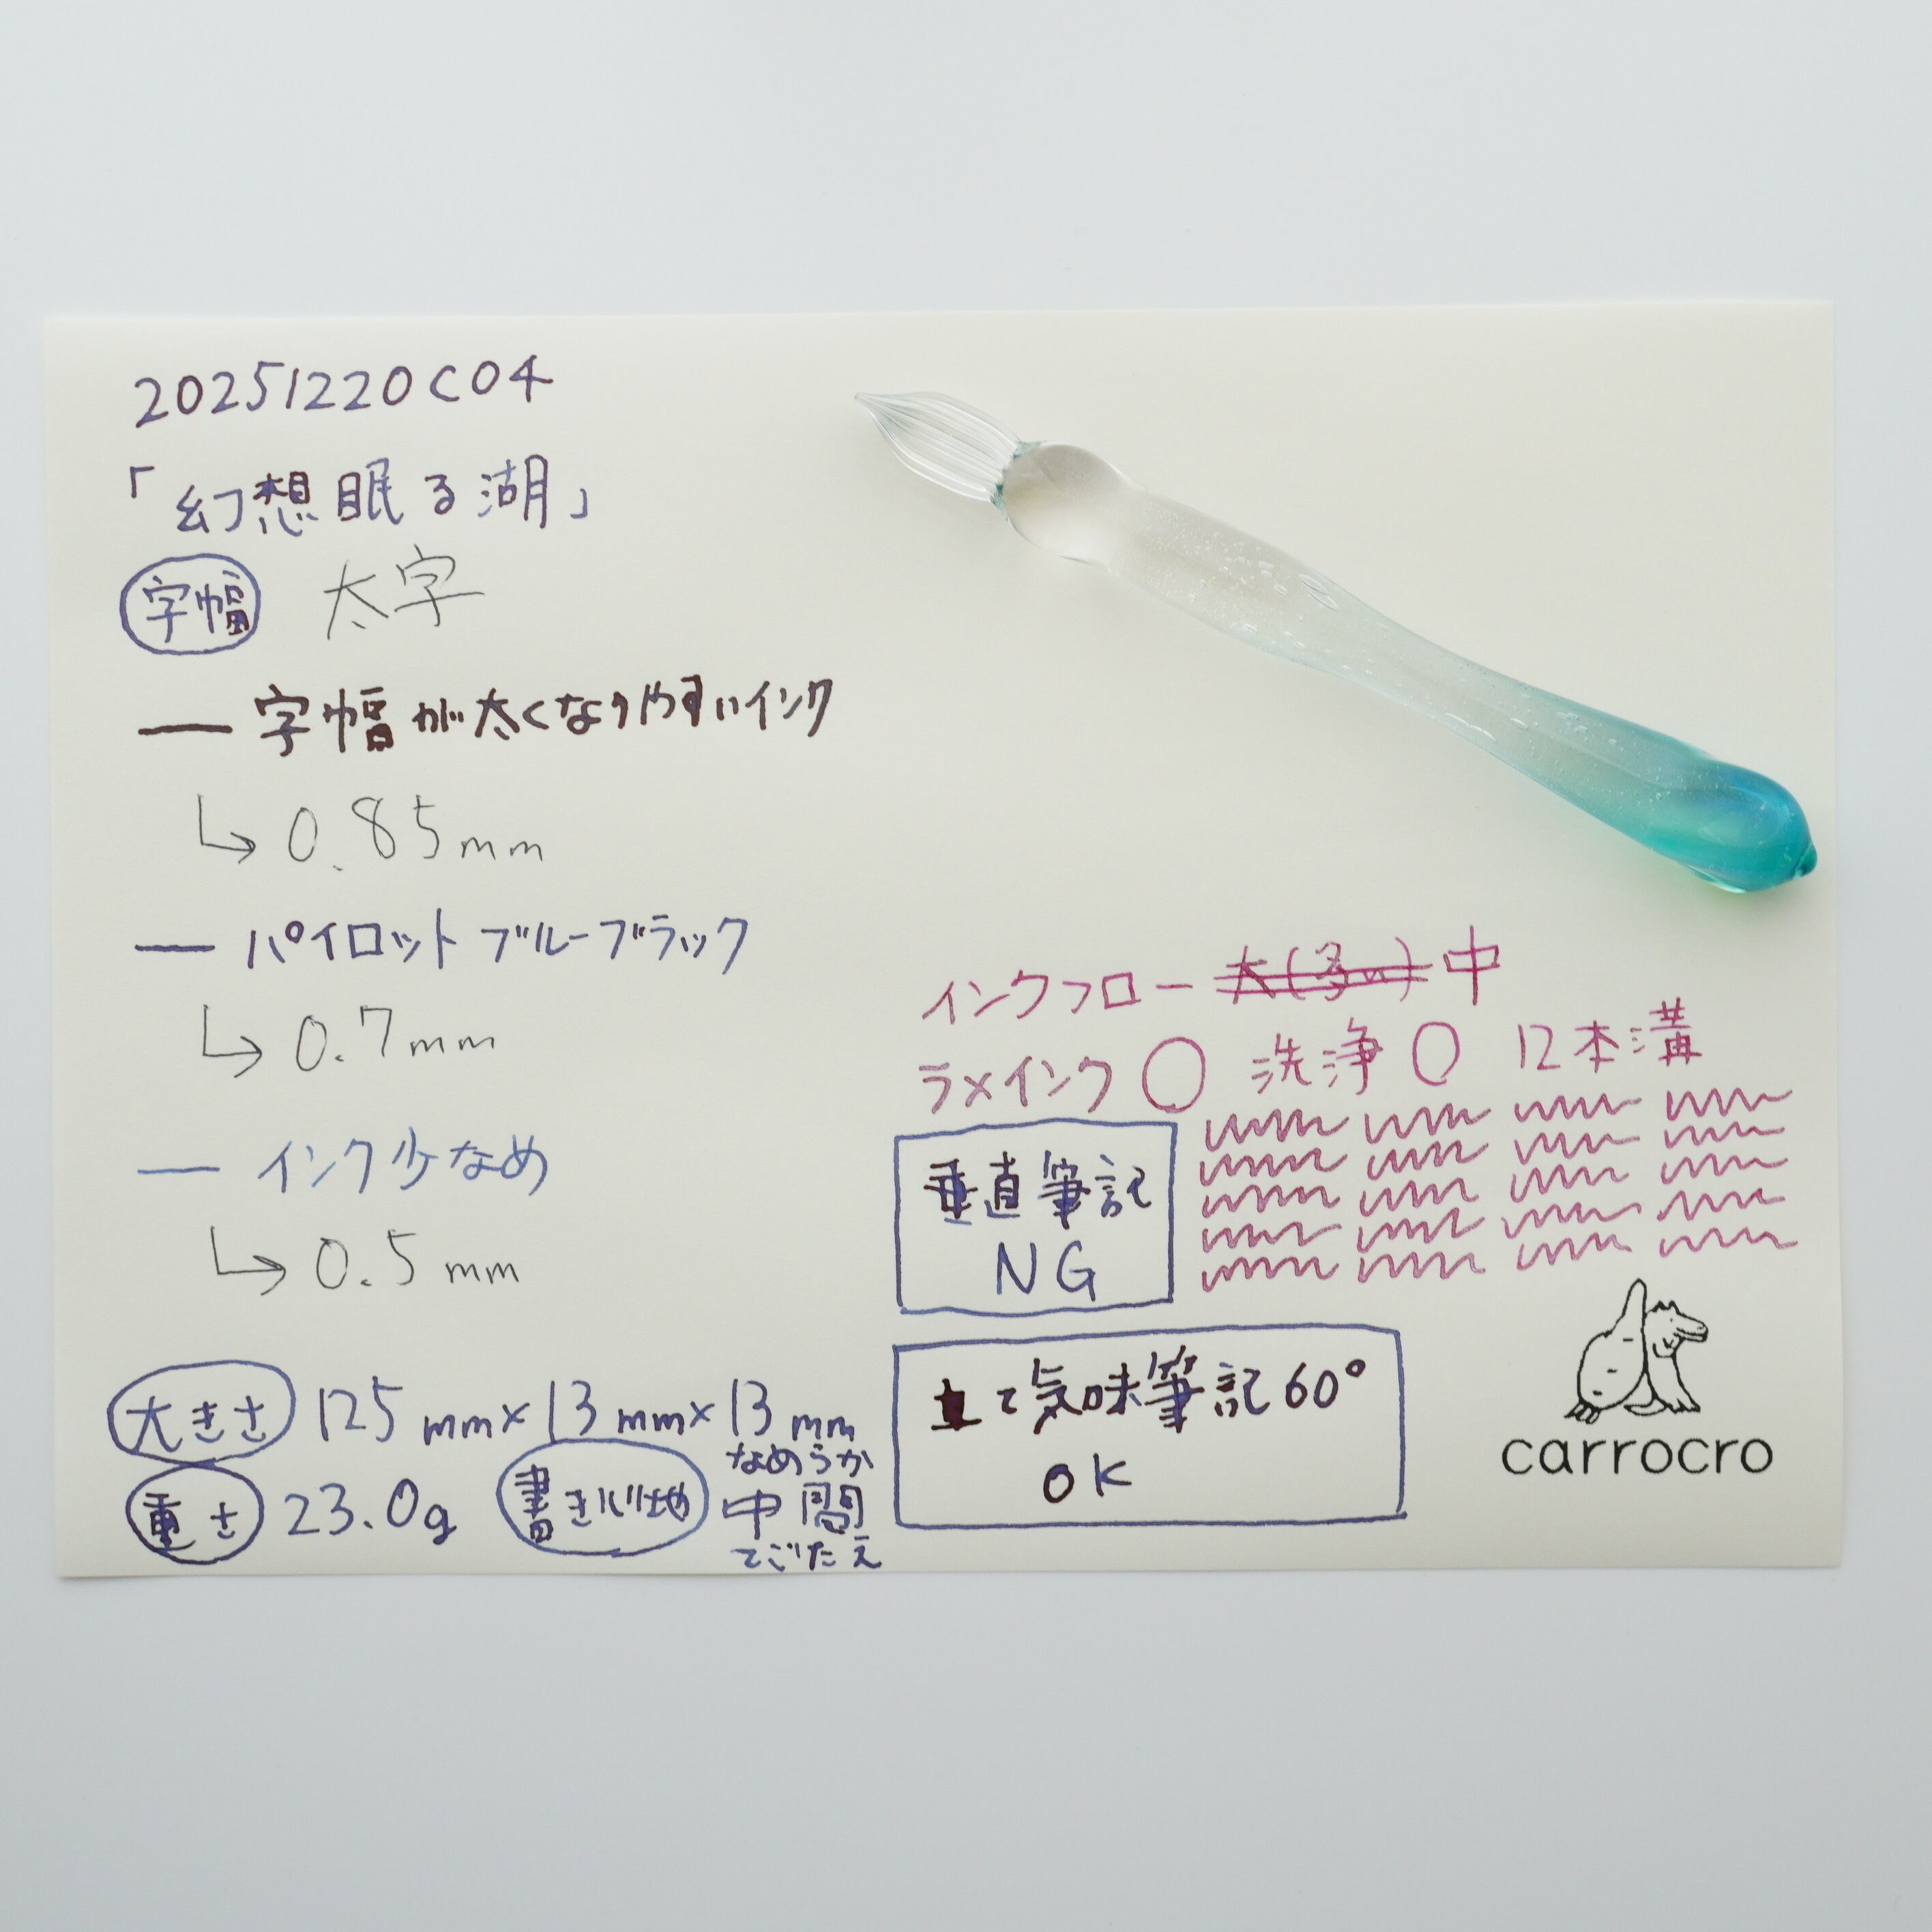 20251220C04
「幻想眠る湖」
字幅 太字
字幅が太くなりやすいインク
0.85mm
パイロット ブルーブラック
0.7mm
インク少なめ
0.5mm
大きさ 125mm×13mm×13mm
重さ 23.0g 書き心地
なめらか
中間
てごたえ
インクフロー 大(多め) 中
ラメインク ○ 洗浄 ○ 12本溝
垂直筆記
NG
立て気味筆記60°
OK
carrocro